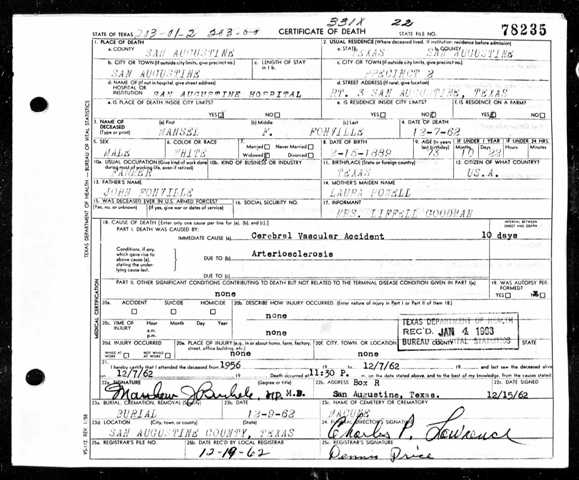 331X 22
STATE OF TEXAS 203-01-2 203-00 CERTIFICATE OF DEATH STATE FILE NO. 78235
1. PLACE OF DEATH 2. USUAL RESIDENCE (Where deceased lived. If institution: residence before admission)
a. COUNTY SAN AUGUSTINE a. STATE TEXAS b. COUNTY SAN AUGUSTINE
b. CITY OR TOWN (If outside city limits, give precinct no.) c. LENGTH OF STAY in 1 b. c. CITY OR TOWN (If outside city limits, give precinct no.)
SAN AUGUSTINE PRECINCT 2
d. NAME OF (If not in hospital, give street address) HOSPITAL OR INSTITUTION SAN AUGUSTINE HOSPITAL d. STREET ADDRESS (If rural, give location) RT. 3 SAN AUGUSTINE, TEXAS
e. IS PLACE OF DEATH INSIDE CITY LIMITS? YES NO e. IS RESIDENCE INSIDE CITY LIMITS? YES NO f. IS RESIDENCE ON A FARM? YES NO
3. NAME OF DECEASED (Type or print) (a) First (b) Middle (c) Last 4. DATE OF DEATH
MANSEL F. FONVILLE 12-7-62
5. SEX 6. COLOR OR RACE 7. Married Never Married Widowed Divorced 8. DATE OF BIRTH 9. AGE (In years last birthday) IF UNDER 1 YEAR IF UNDER 24 HRS.
MALE WHITE 73 10 22
10a. USUAL OCCUPATION (Give kind of work done during most of working life, even if retired) 10b. KIND OF BUSINESS OR INDUSTRY 11. BIRTHPLACE (State or foreign country) 12. CITIZEN OF WHAT COUNTRY?
FARMER TEXAS U.S.A.
13. FATHER'S NAME 14. MOTHER'S MAIDEN NAME
JOHN FONVILLE LAURA POWELL
15. WAS DECEASED EVER IN U.S. ARMED FORCES? 16. SOCIAL SECURITY NO. 17. INFORMANT
(Yes, no, or unknown) (If yes, give war or dates of service) MRS. LIFFELL GOODMAN
18. CAUSE OF DEATH [Enter only one cause per line for (a), (b), and (c).] INTERVAL BETWEEN ONSET AND DEATH
PART I. DEATH WAS CAUSED BY:
IMMEDIATE CAUSE (a) Cerebral Vascular Accident 10 days
Conditions, if any, which gave rise to above cause (a), stating the underlying cause last.
DUE TO (b) Arteriosclerosis
DUE TO (c)
PART II. OTHER SIGNIFICANT CONDITIONS CONTRIBUTING TO DEATH BUT NOT RELATED TO THE TERMINAL DISEASE CONDITION GIVEN IN PART I(a) 19. WAS AUTOPSY PERFORMED?
none YES NO
20a. ACCIDENT SUICIDE HOMICIDE 20b. DESCRIBE HOW INJURY OCCURRED. (Enter nature of injury in Part I or Part II of item 18.)
none
20c. TIME OF INJURY Hour Month Day Year a.m. p.m. none
TEXAS DEPARTMENT OF HEALTH
REC'D JAN 4 1963
BUREAU OF VITAL STATISTICS
20d. INJURY OCCURRED WHILE AT WORK NOT WHILE AT WORK 20e. PLACE OF INJURY (e.g. in or about home, farm, factory, street, office building, etc.) 20f. CITY, TOWN, OR LOCATION COUNTY STATE
none none
21. I hereby certify that I attended the deceased from 1956 to 12/7/62 and last saw the deceased alive on
12/7/62 Death occurred at 11:30 P. m. on the date stated above, and to the best of my knowledge, from the causes stated.
22a. SIGNATURE (Degree or title) 22b. ADDRESS Box R 22c. DATE SIGNED
M.D. San Augustine, Texas. 12/15/62
23a. BURIAL, CREMATION, REMOVAL (Specify) 23b. DATE 23c. NAME OF CEMETERY OR CREMATORY
BURIAL
23d. LOCATION (City, town, or county) (State) 24. FUNERAL DIRECTOR'S SIGNATURE
SAN AUGUSTINE COUNTY, TEXAS Charles P. Lawrence
25a. REGISTRAR'S FILE NO. 25b. DATE REC'D BY LOCAL REGISTRAR 25c. REGISTRAR'S SIGNATURE
12-19-62 Dennis Price
TEXAS DEPARTMENT OF HEALTH — BUREAU OF VITAL STATISTICS
MEDICAL CERTIFICATION